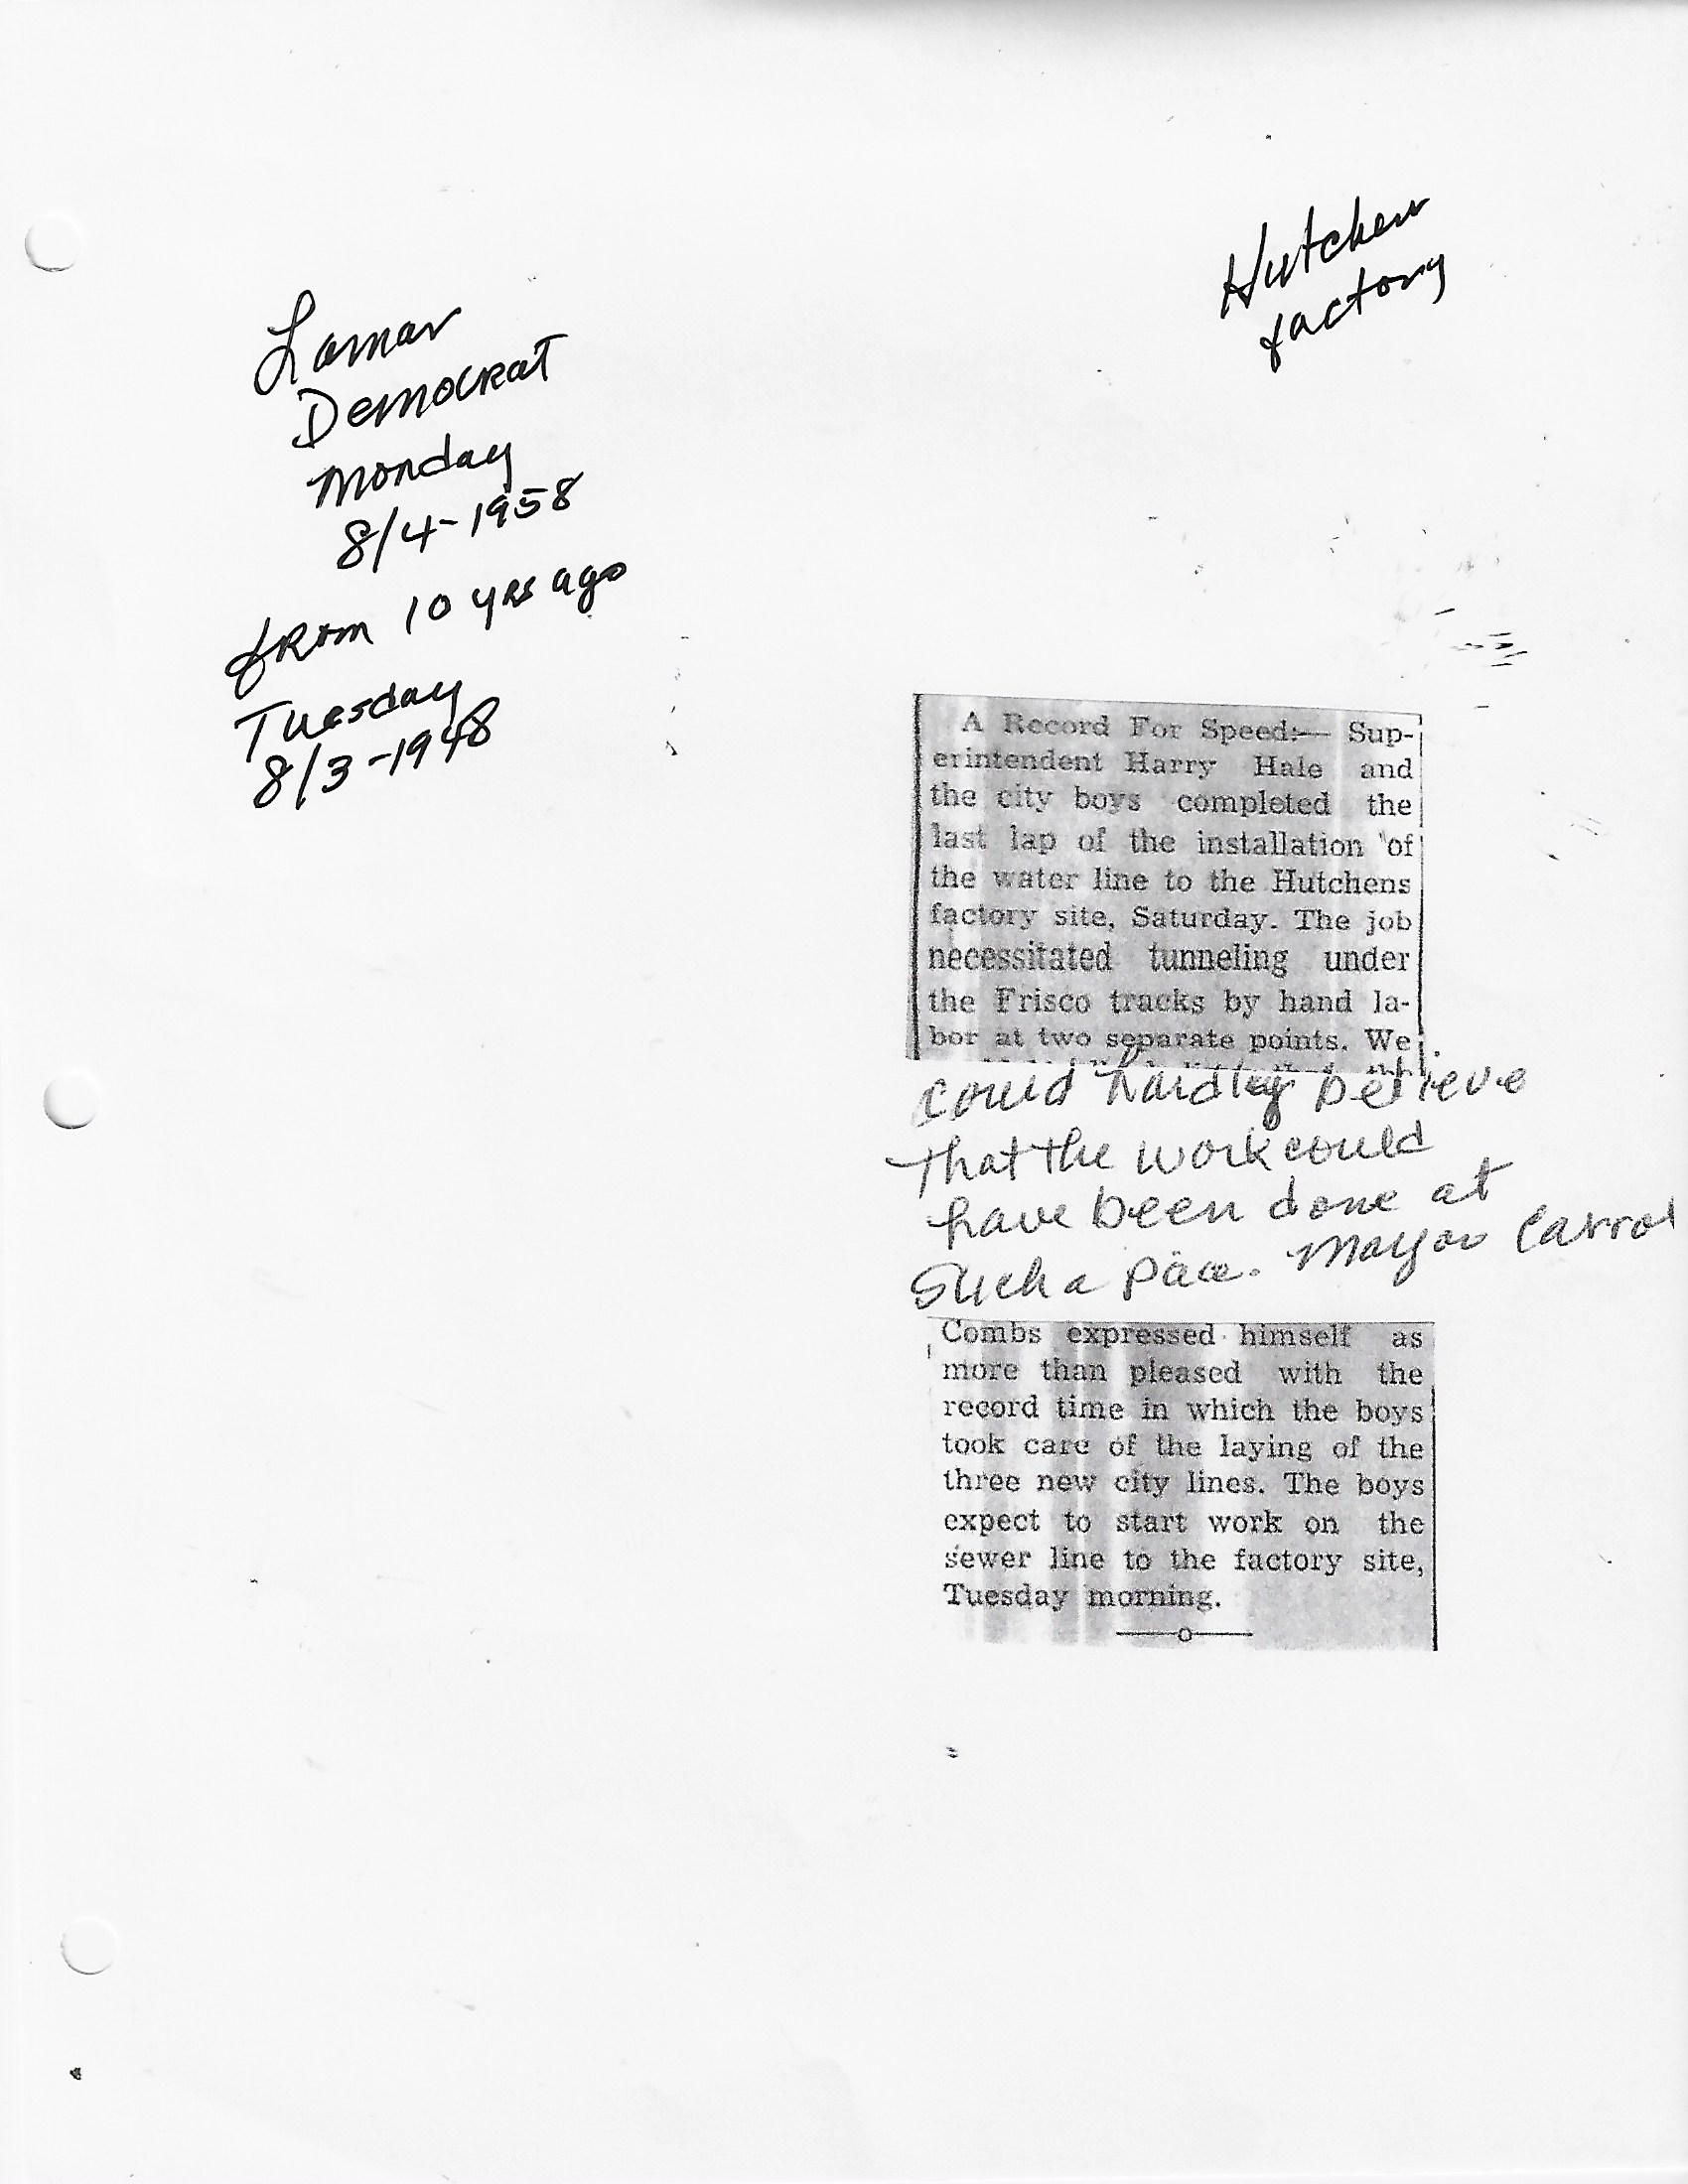 Hutchens
factory
Lamar
Democrat
Monday
8/4-1958
from 10 yrs ago
Tuesday
8/3-1948
A Record For Speed:— Sup-
erintendent Harry Hale and
the city boys completed the
last lap of the installation of
the water line to the Hutchens
factory site, Saturday. The job
necessitated tunneling under
the Frisco tracks by hand la-
bor at two separate points. We
could hardley believe
that the work could
have been done at
such a pace. Mayor Carrol
Combs expressed himself as
more than pleased with the
record time in which the boys
took care of the laying of the
three new city lines. The boys
expect to start work on the
sewer line to the factory site,
Tuesday morning.